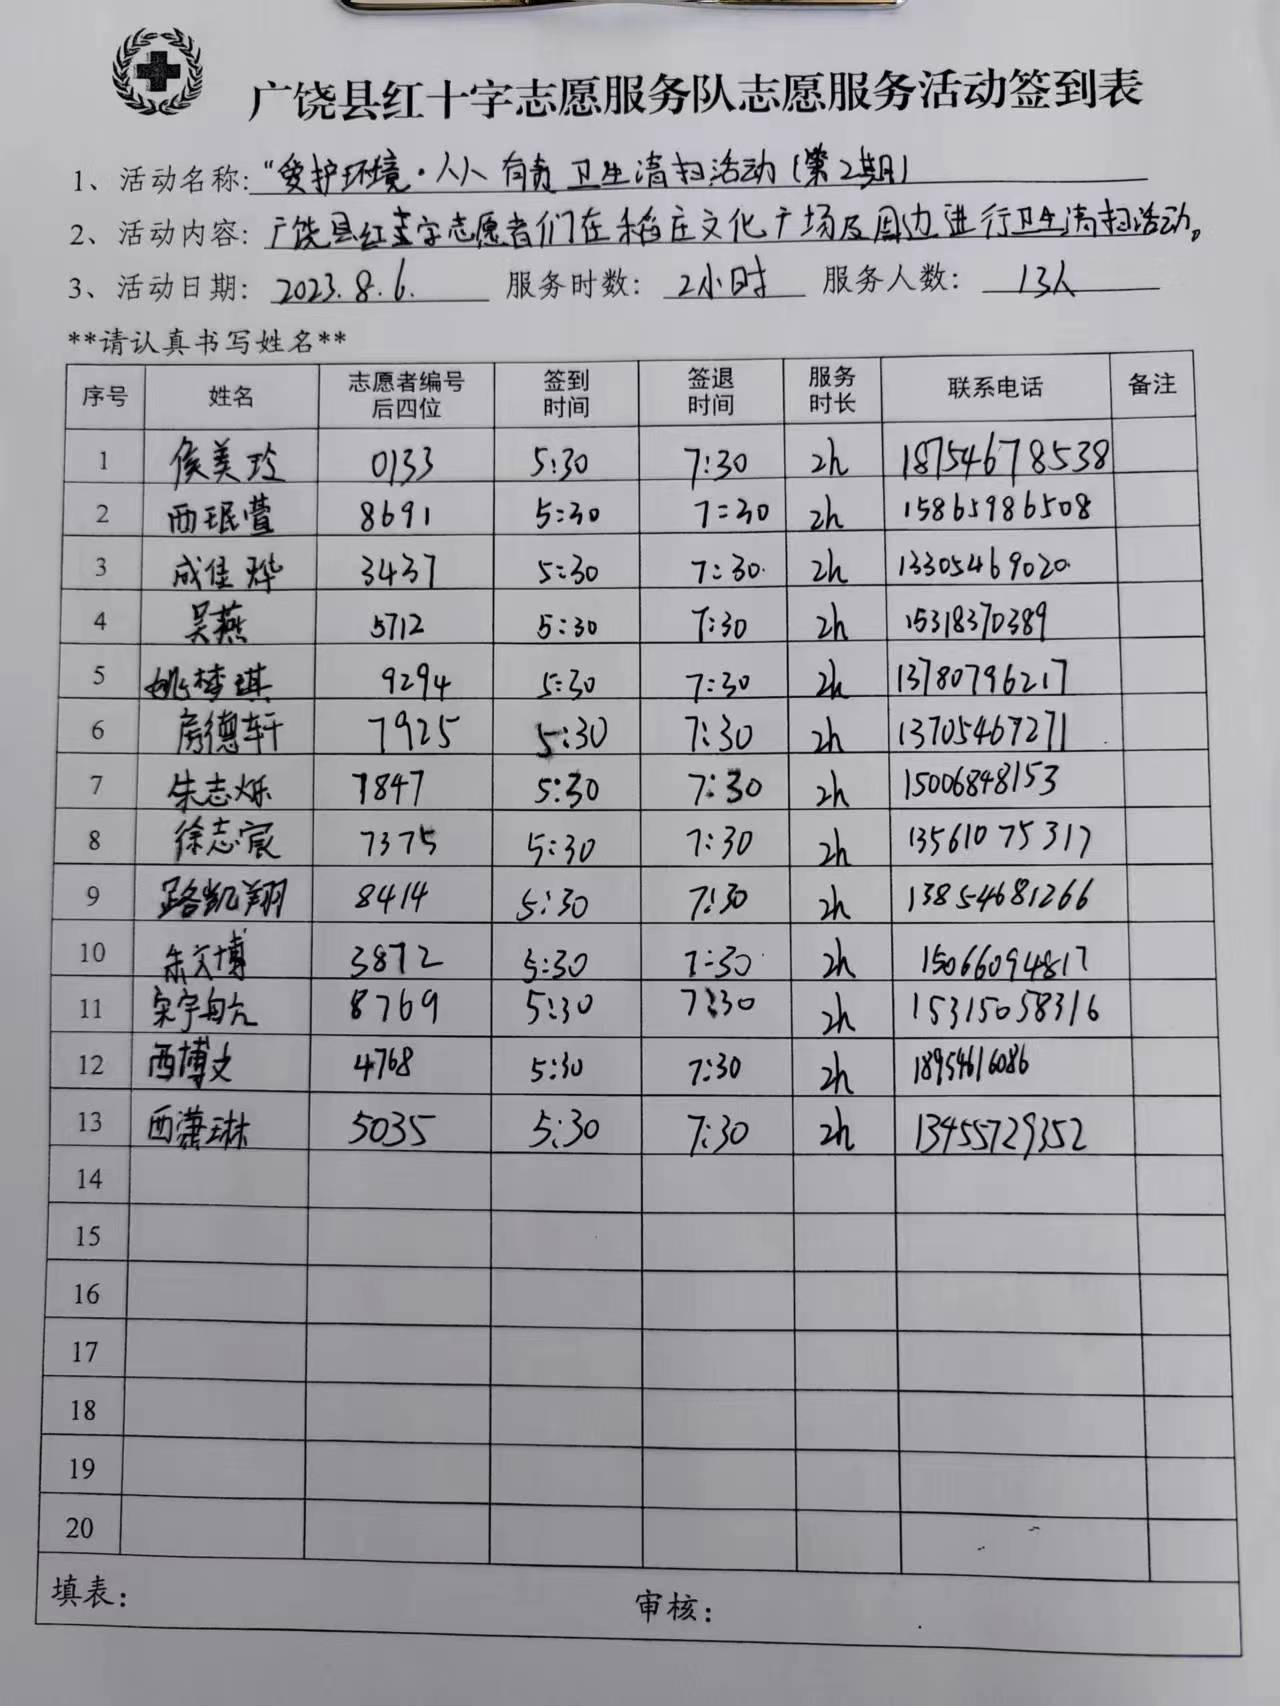 广饶县红十字志愿服务队志愿服务活动签到表
1、活动名称:“爱护环境·人人有责 卫生清扫活动(第2期)
2、活动内容:广饶县红十字志愿者们在稻庄文化广场及周边进行卫生清扫活动。
3、活动日期: 2023.8.6. 服务时数: 2小时 服务人数: 13人
**请认真书写姓名**
序号 姓名 志愿者编号后四位 签到时间 签退时间 服务时长 联系电话 备注
1 侯美玲 0133 5:30 7:30 2h 18754678538
2 西珉萱 8691 5:30 7:30 2h 15865986508
3 成佳烨 3437 5:30 7:30 2h 13305469020
4 吴燕 5712 5:30 7:30 2h 15318370389
5 姚梦琪 9294 5:30 7:30 2h 13780796217
6 房德轩 7925 5:30 7:30 2h 13705467271
7 朱志烁 1847 5:30 7:30 2h 15006848153
8 徐志宸 7375 5:30 7:30 2h 13561075317
9 路凯翔 8414 5:30 7:30 2h 13854681266
10 文博 3872 5:30 7:30 2h 15066094817
11 宋宇 8769 5:30 7:30 2h 15315058316
12 西博文 4768 5:30 7:30 2h 18954616086
13 西潇琳 5035 5:30 7:30 2h 13455729352
14
15
16
17
18
19
20
填表: 审核: